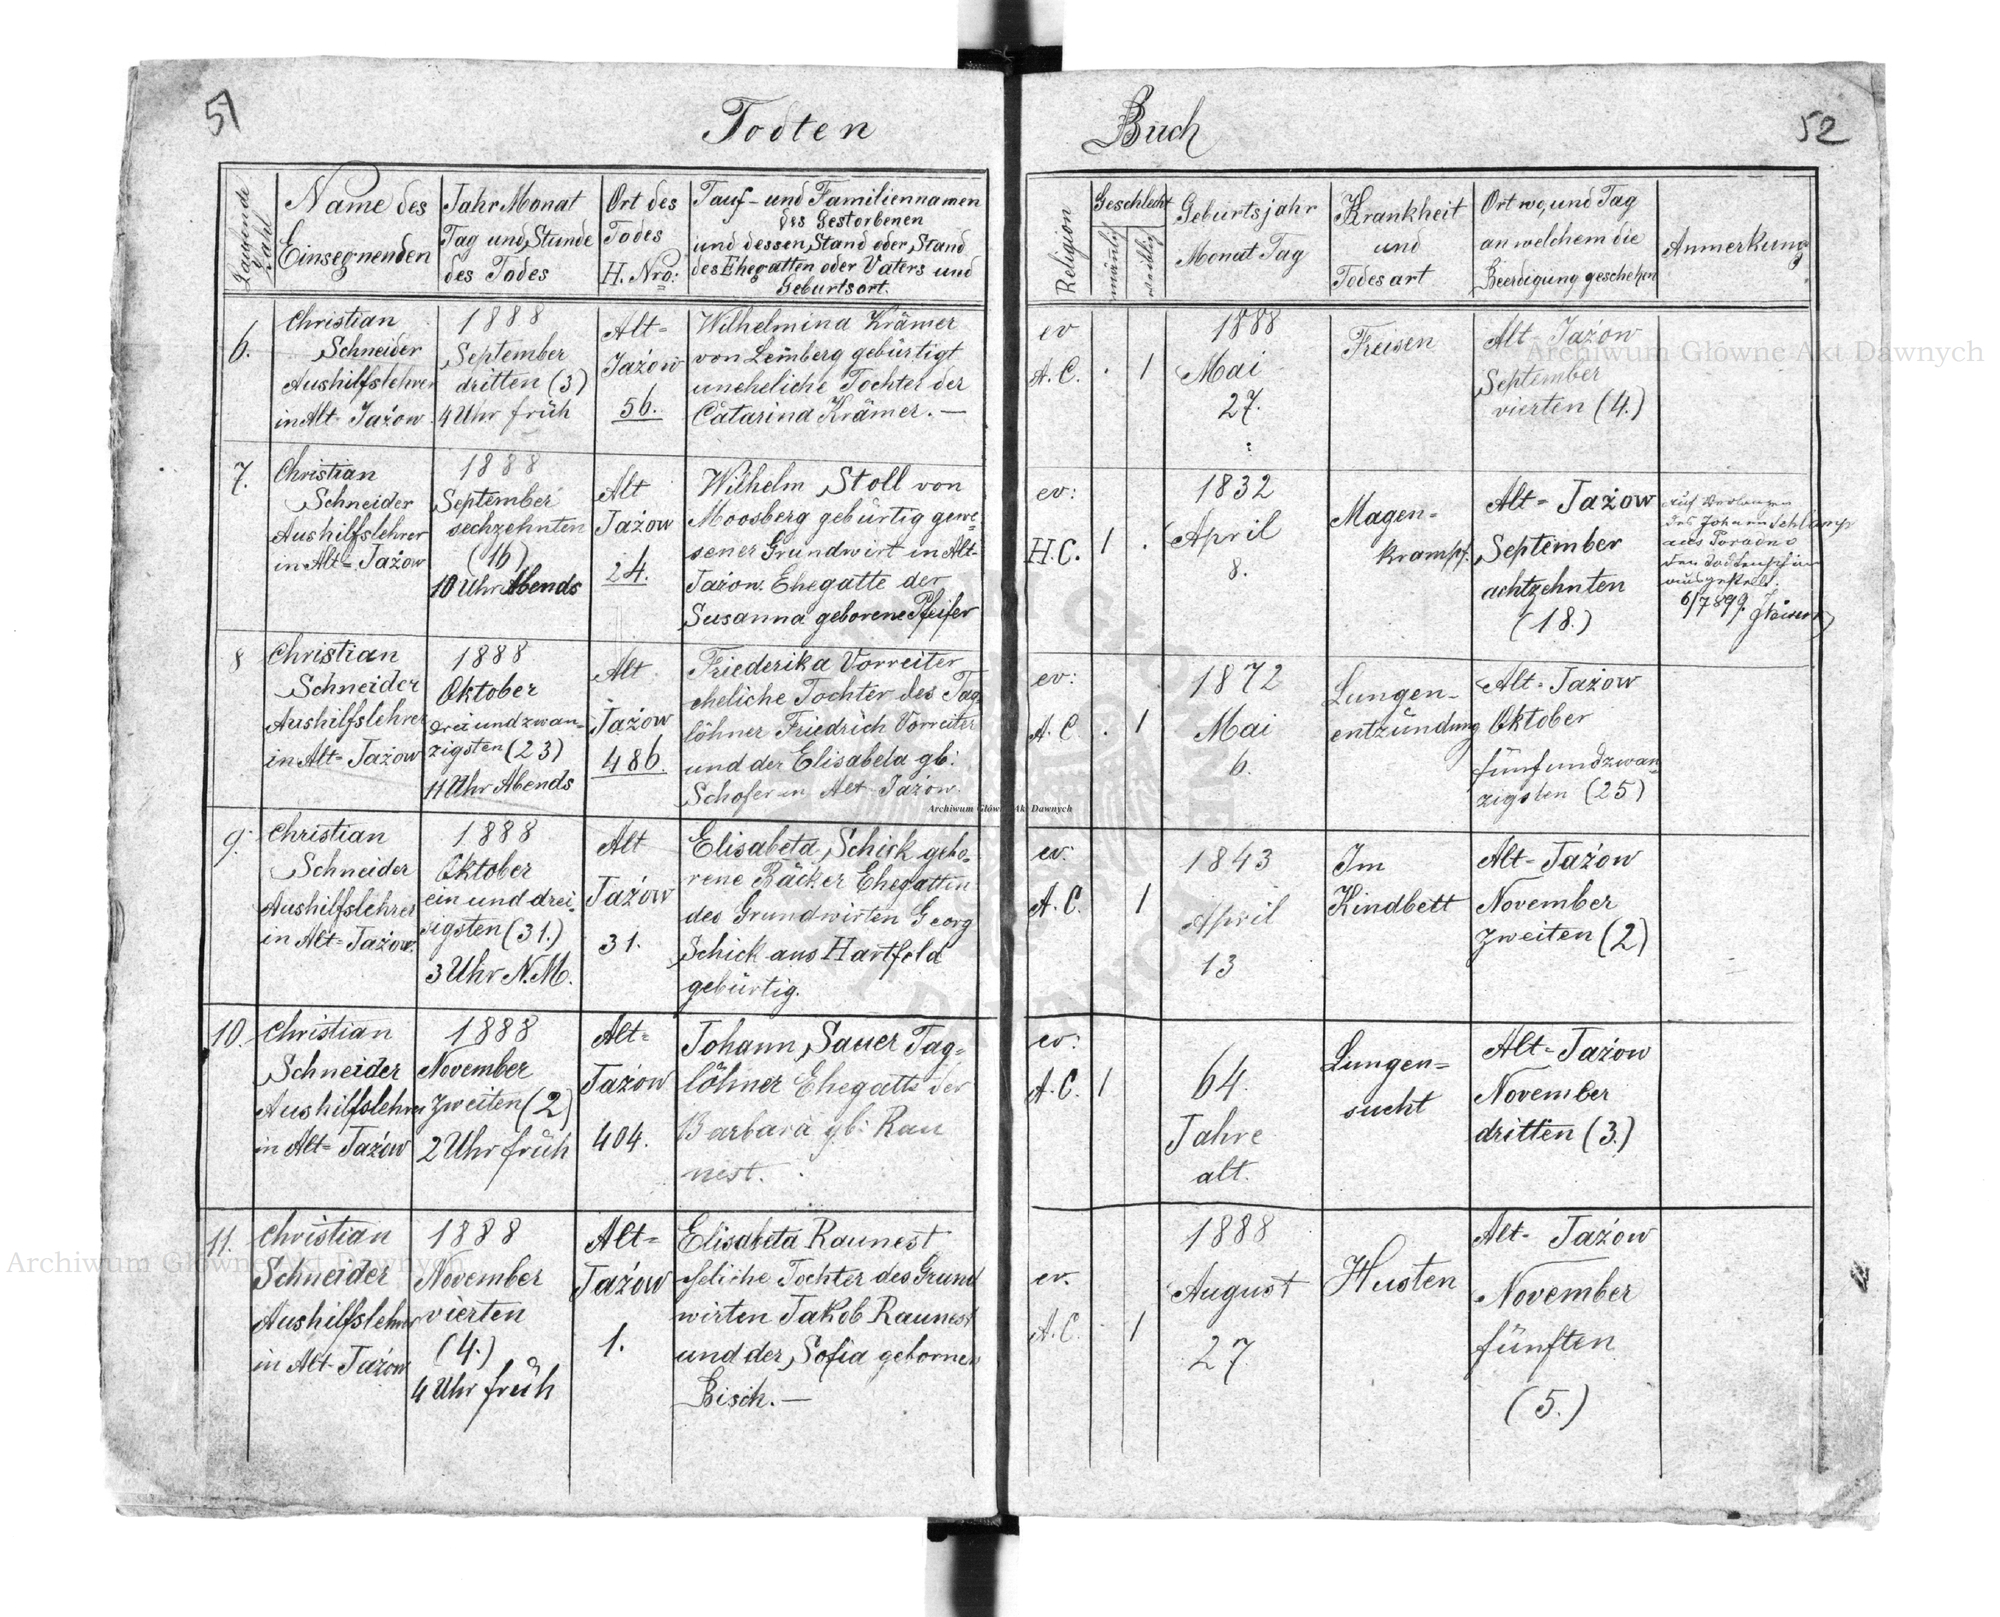 51
Todten
Buch
52
Laufende Zahl
Name des
Einsegnenden
Jahr Monat
Tag und Stunde
des Todes
Ort des
Todes
H. Nro:
Tauf- und Familiennamen
des Gestorbenen
und dessen Stand oder Stand
des Ehegatten oder Vaters und
Geburtsort.
Religion
Geschlecht
männlich
weiblich
Geburtsjahr
Monat Tag
Krankheit
und
Todesart
Ort wo, und Tag
an welchem die
Beerdigung geschehen
Anmerkung
6.
Christian
Schneider
Aushilfslehrer
in Alt-Jażow
1888
September
dritten (3)
4 Uhr früh
Alt-
Jażow
56.
Wilhelmina Krämer
von Lemberg gebürtigt
uneheliche Tochter der
Catarina Krämer. —
ev
A. C.
1
1888
Mai
27.
Freisen
Alt Jażow
September
vierten (4.)
7.
Christian
Schneider
Aushilfslehrer
in Alt-Jażow
1888
September
sechzehnten
(16)
10 Uhr Abends
Alt
Jażow
24.
Wilhelm Stoll von
Moosberg gebürtig gewe-
sener Grundwirt in Alt-
Jażow. Ehegatte der
Susanna geborene Pfeifer
ev:
H. C.
1
1832
April
8.
Magen-
krampf.
Alt-Jażow
September
achtzehnten
(18.)
auf Verlangen
des Johann Schlamp
aus
den Todtenschein
ausgestellt.
6/7 899.
8
Christian
Schneider
Aushilfslehrer
in Alt-Jażow
1888
Oktober
drei und zwan-
zigsten (23)
11 Uhr Abends
Alt
Jażow
486.
Friederika Vorreiter
eheliche Tochter des Tag-
löhner Friedrich Vorreiter
und der Elisabeta gb:
Schofer in Alt Jażow.
ev:
A. C.
1
1872
Mai
6.
Lungen-
entzündung
Alt-Jażow
Oktober
fünf und zwan-
zigsten (25)
9.
Christian
Schneider
Aushilfslehrer
in Alt-Jażow.
1888
Oktober
ein und drei-
sigsten (31.)
3 Uhr N.M.
Alt
Jażow
31.
Elisabeta Schick gebo-
rene Bäcker Ehegattin
des Grundwirten Georg
Schick aus Hartfeld
gebürtig.
ev:
A. C.
1
1843
April
13
Im
Kindbett
Alt-Jażow
November
zweiten (2)
10.
Christian
Schneider
Aushilfslehrer
in Alt-Jażow
1888
November
zweiten (2)
2 Uhr früh
Alt-
Jażow
404.
Johann Sauer Tag-
löhner Ehegatte der
Barbara gb: Rau
nest.
ev:
A. C.
1
64.
Jahre
alt.
Lungen-
sucht
Alt-Jażow
November
dritten (3.)
11.
Christian
Schneider
Aushilfslehrer
in Alt-Jażow
1888
November
vierten
(4.)
4 Uhr früh
Alt-
Jażow
1.
Elisabeta Raunest
eheliche Tochter des Grund
wirten Jakob Raunest
und der Sofia gebornen
Bisch. —
ev.
A. C.
1
1888
August
27
Husten
Alt-Jażow
November
fünften
(5.)
Archiwum Główne Akt Dawnych
Archiwum Główne Akt Dawnych
Archiwum Główne Akt Dawnych